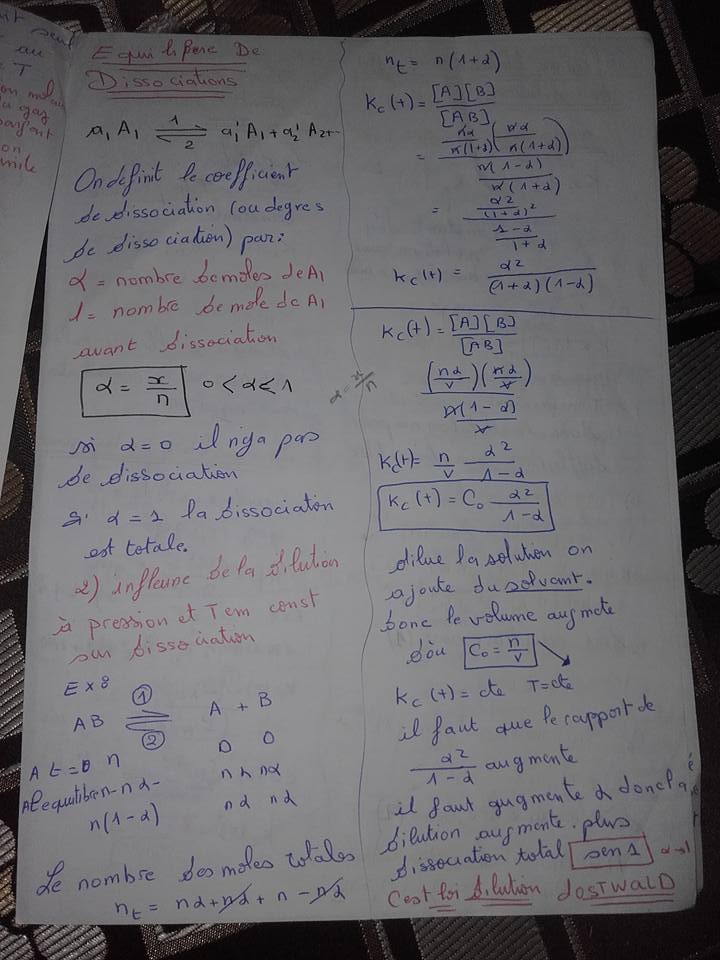 Equilibre De
Dissociations
a₁ A₁ ⇌ a'₁ A₁ + a'₂ A₂+..
1
2
On definit le coefficient
de dissociation (ou degres
de dissociation) par:
α = nombre de moles de A₁
1 = nombre de mole de A₁
avant dissociation
α = x/n 0 < α < 1
si α = 0 il n'ya pas
de dissociation
Si α = 1 la dissociation
est totale.
2) infleune de la dilution
à pression et Tem const
sur dissociation
Ex 8
AB ⇌ A + B
①
②
At = 0 n 0 0
Al equilibre n - nα nα nα
n(1-α) nα nα
Le nombre des moles totales
n_t = nα + nα + n - nα
n_t = n(1+α)
Kc(t) = [A][B] / [AB]
= (nα / n(1+α)) (nα / n(1+α)) / (n(1-α) / n(1+α))
= (α² / (1+α)²) / ((1-α) / (1+α))
Kc(t) = α² / (1+α)(1-α)
Kc(t) = [A][B] / [AB]
α = x/n
(nα/v)(nα/v) / (n(1-α)/v)
Kc(t) = n/v α²/(1-α)
Kc(t) = C₀ α²/(1-α)
dilue la solution on
ajoute du solvant.
donc le volume augmete
d'où C₀ = n/v ↘
Kc(t) = cte T = cte
il faut que le rapport de
α²/(1-α) augmente
il faut augmente α donc la
dilution augmente. plus
dissociation total sen 1 α→1
C'est loi dilution d'OSTWALD